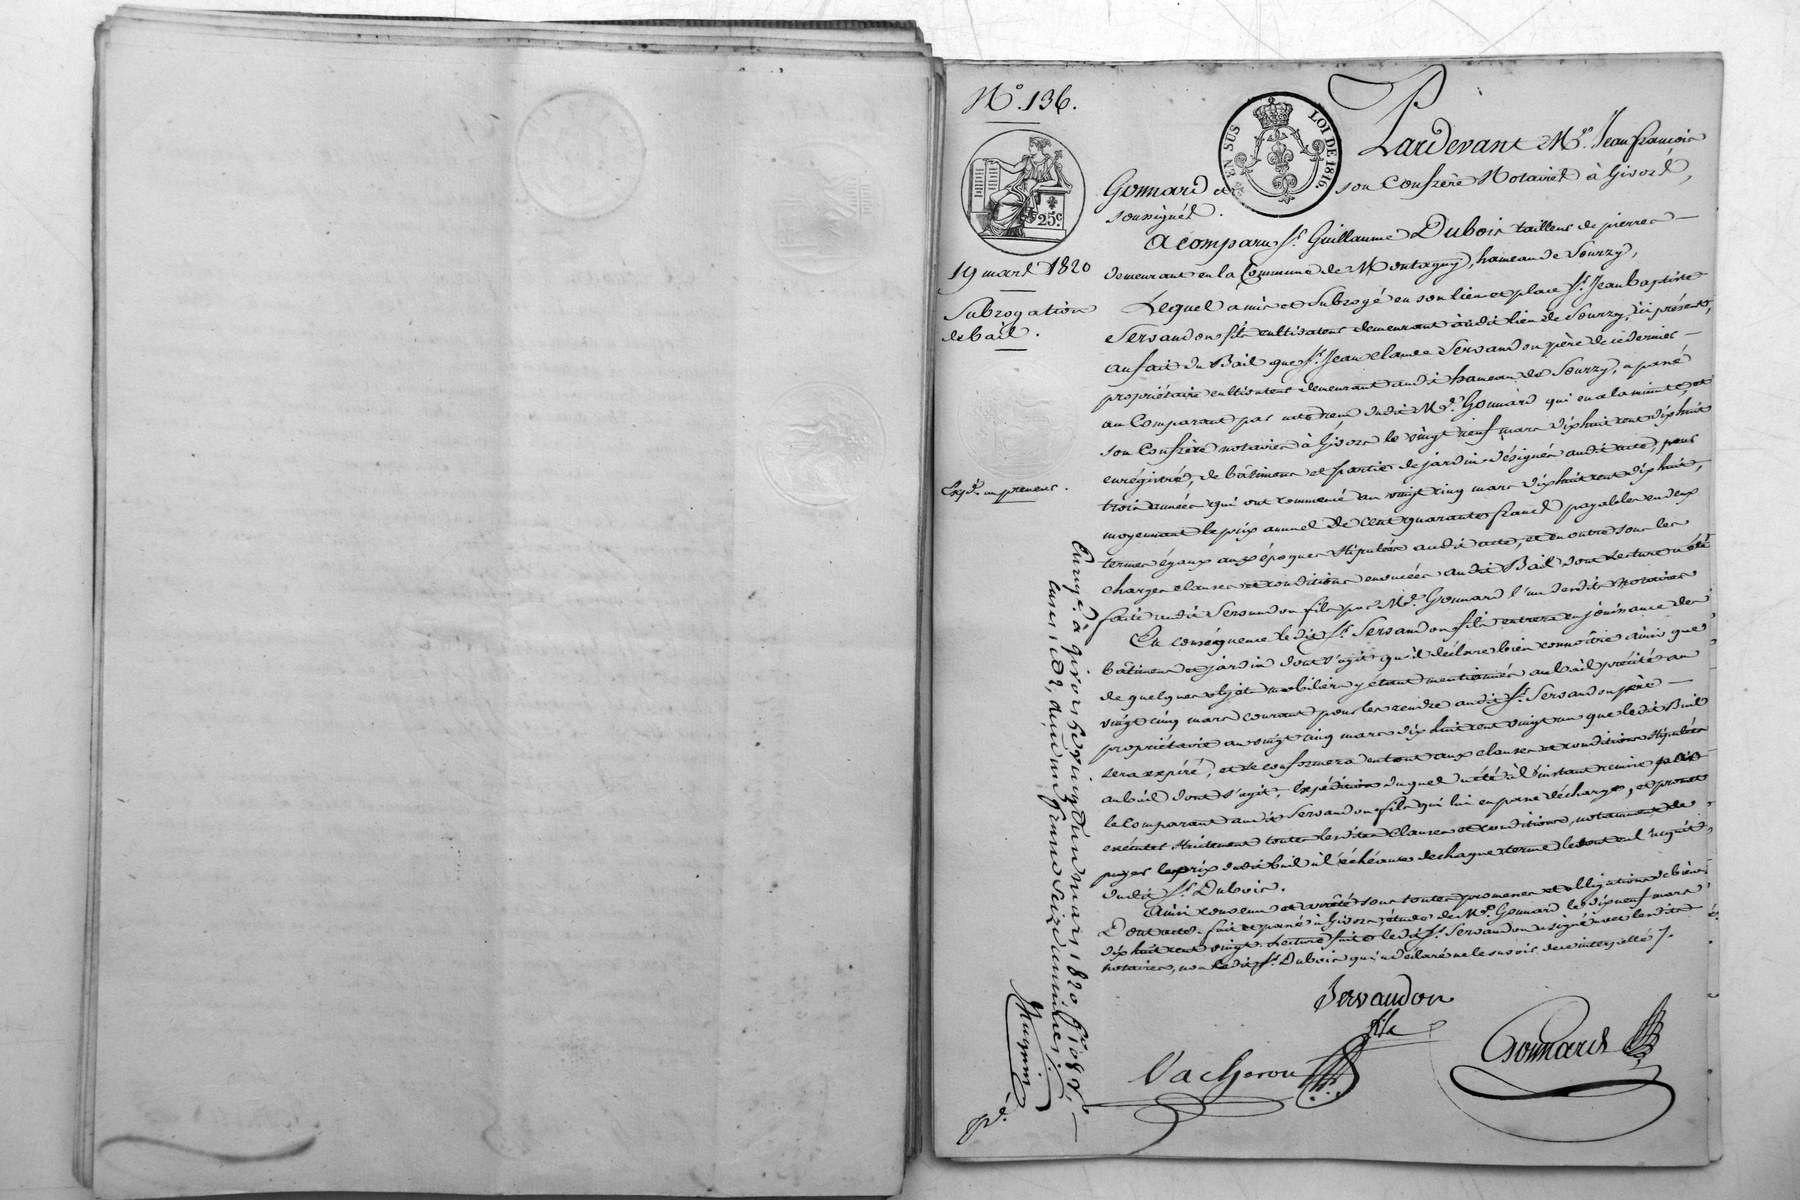 N.º 136.
EN SUS
LOI DE 1816
25.c
19 mars 1820
Subrogation
de bail.
Expd. au preneur.
Pardevant M.e Jean françois
Gonnard et son Confrère Notaires à Givors,
soussignés.
A comparu S.r Guillaume Dubois tailleur de pierres
demeurant en la Commune de Montagny, hameau de Sourzy,
Lequel a mis et Subrogé en son lieu et place S.r Jean baptiste
Servandon fils cultivateur demeurant audit lieu de Sourzy, ici présent,
au fait du Bail que S.r Jean claude Servandon père de ce dernier
propriétaire cultivateur demeurant audit hameau de Sourzy, a passé
au Comparant par acte reçu dudit M.e Gonnard qui en a la minute et
son Confrère notaires à Givors le vingt neuf mars dix huit cent dix huit
enrégistré, de bâtimens et partie de jardin désignés audit acte, pour
trois années qui ont commencé au vingt cinq mars dix huit cent dix huit,
moyennant le prix annuel de cent quarante francs payables en deux
termes égaux aux époques stipulées audit acte, et en outre sous les
charges clauses et conditions énoncées audit Bail dont lecture a été
faite audit Servandon fils par M.e Gonnard l'un desdits Notaires
En conséquence ledit S.r Servandon fils entrera en jouissance des
bâtimens et jardin dont s'agit qu'il déclare bien connoître ainsi que
de quelques objets mobiliers y étant mentionnés au bail précité au
vingt cinq mars courant pour les rendre audit S.r Servandon père
propriétaire au vingt cinq mars dix huit cent vingt un que ledit Bail
sera expiré, et se conformera en tout aux clauses et conditions stipulées
au bail dont s'agit, expédition duquel a été à l'instant remise par
le Comparant audit Servandon fils qui lui en passe décharge, et promet
exécuter strictement toutes lesdites clauses et conditions, notamment de
payer le prix dudit bail à l'échéance de chaque terme le tout en l'acquit,
dudit S.r Dubois.
Ainsi convenu et arrêté sous toutes promesses et obligations de biens
Dont acte. fait et passé à Givors étude de M.e Gonnard le dix neuf mars
dix huit cent vingt. Lecture faite ledit S.r Servandon a signé avec lesdits
notaires, non ledit S.r Dubois qui a déclaré ne le savoir de ce interpellé.
Servandon
fils
Vacheron
Gonnard
Enregé. à givors le vingt un mars 1820 f.o 108 V.o
Cases 1 et 2, deux francs